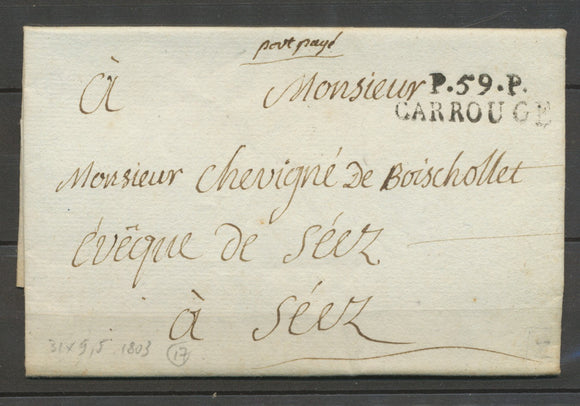 port payé
à Monsieur P.59.P.
CARROUGE
Monsieur Chevigné De Boischollet
évêque de Séez
à Séez
31 x 9,5 . 1803 17